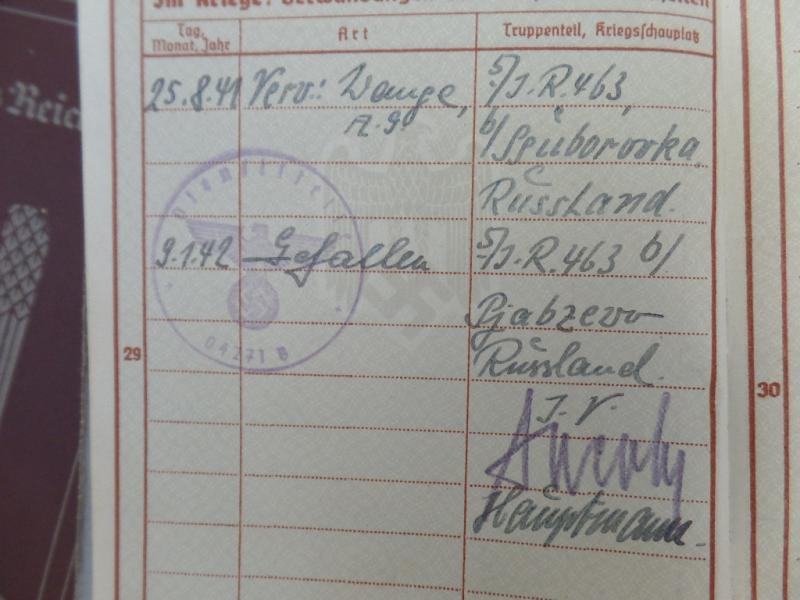 Im Kriege: Verwundungen
Tag, Monat, Jahr
Art
Truppenteil, Kriegsschauplatz
25.8.41 Verw.: Wange, 5/I.R.463,
A.G. b/
Russland.
9.1.42 Gefallen 5/I.R.463 b/
Pjabzewo
Russland.
I.V.
Hauptmann.
Dienststelle
04271 B
29
30
Reich